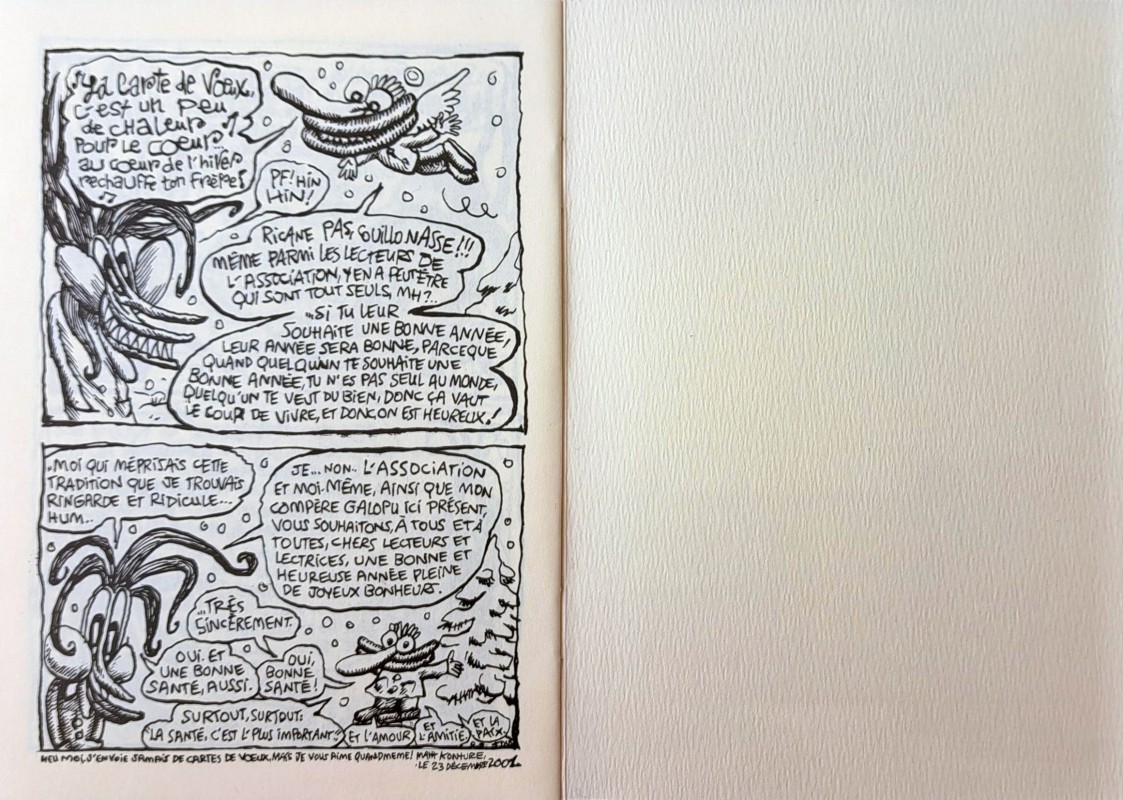 La carte de Voeux,
c'est un peu
de chaleur
pour le coeur...
au coeur de l'hiver
rechauffe ton frère
PF! HIN
HIN!
RICANE PAS, COUILLONASSE!!!
MÊME PARMI LES LECTEURS DE
L'ASSOCIATION, Y EN A PEUT ÊTRE
QUI SONT TOUT SEULS, MH?..
..SI TU LEUR
SOUHAITE UNE BONNE ANNÉE,
LEUR ANNÉE SERA BONNE, PARCEQUE
QUAND QUELQU'UN TE SOUHAITE UNE
BONNE ANNÉE, TU N'ES PAS SEUL AU MONDE,
QUELQU'UN TE VEUT DU BIEN, DONC ÇA VAUT
LE COUP DE VIVRE, ET DONC ON EST HEUREUX!
..MOI QUI MÉPRISAIS CETTE
TRADITION QUE JE TROUVAIS
RINGARDE ET RIDICULE...
HUM..
JE... NON.. L'ASSOCIATION
ET MOI.MÊME, AINSI QUE MON
COMPÈRE GALOPU ICI PRÉSENT,
VOUS SOUHAITONS, À TOUS ET À
TOUTES, CHERS LECTEURS ET
LECTRICES, UNE BONNE ET
HEUREUSE ANNÉE PLEINE
DE JOYEUX BONHEURS.
...TRÈS
SINCÈREMENT.
OUI. ET
UNE BONNE
SANTÉ, AUSSI.
OUI,
BONNE
SANTÉ!
SURTOUT, SURTOUT:
LA SANTÉ, C'EST L'PLUS IMPORTANT!
ET L'AMOUR
ET
L'AMITIÉ.
ET LA
PAIX.
HEU MOI, J'ENVOIE JAMAIS DE CARTES DE VOEUX, MAIS JE VOUS AIME QUAND MÊME! MATT KONTURE,
.LE 23 DÉCEMBRE 2001